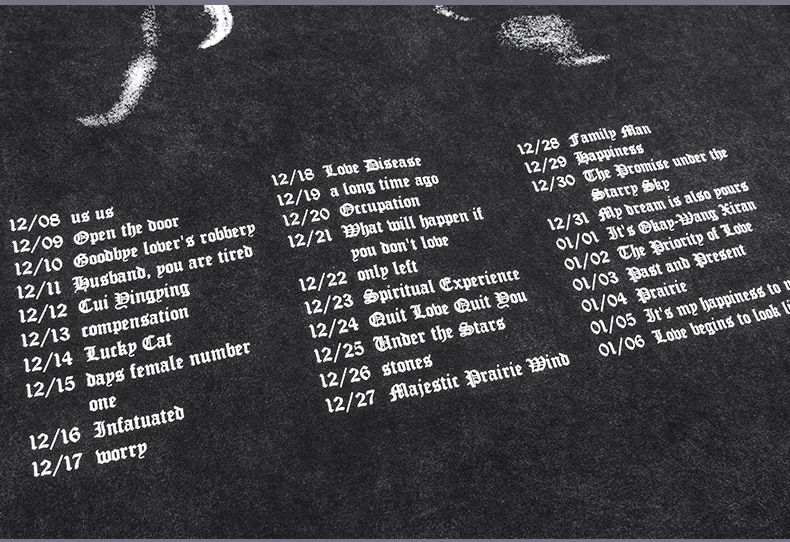 12/08 us us
12/09 Open the door
12/10 Goodbye lover's robbery
12/11 Husband, you are tired
12/12 Cui Yingying
12/13 compensation
12/14 Lucky Cat
12/15 days female number
one
12/16 Infatuated
12/17 worry
12/18 Love Disease
12/19 a long time ago
12/20 Occupation
12/21 What will happen if
you don't love
12/22 only left
12/23 Spiritual Experience
12/24 Quit Love Quit You
12/25 Under the Stars
12/26 stones
12/27 Majestic Prairie Wind
12/28 Family Man
12/29 Happiness
12/30 The Promise under the
Starry Sky
12/31 My dream is also yours
01/01 It's Okay-Wang Xiran
01/02 The Priority of Love
01/03 Past and Present
01/04 Prairie
01/05 It's my happiness to
01/06 Love begins to look